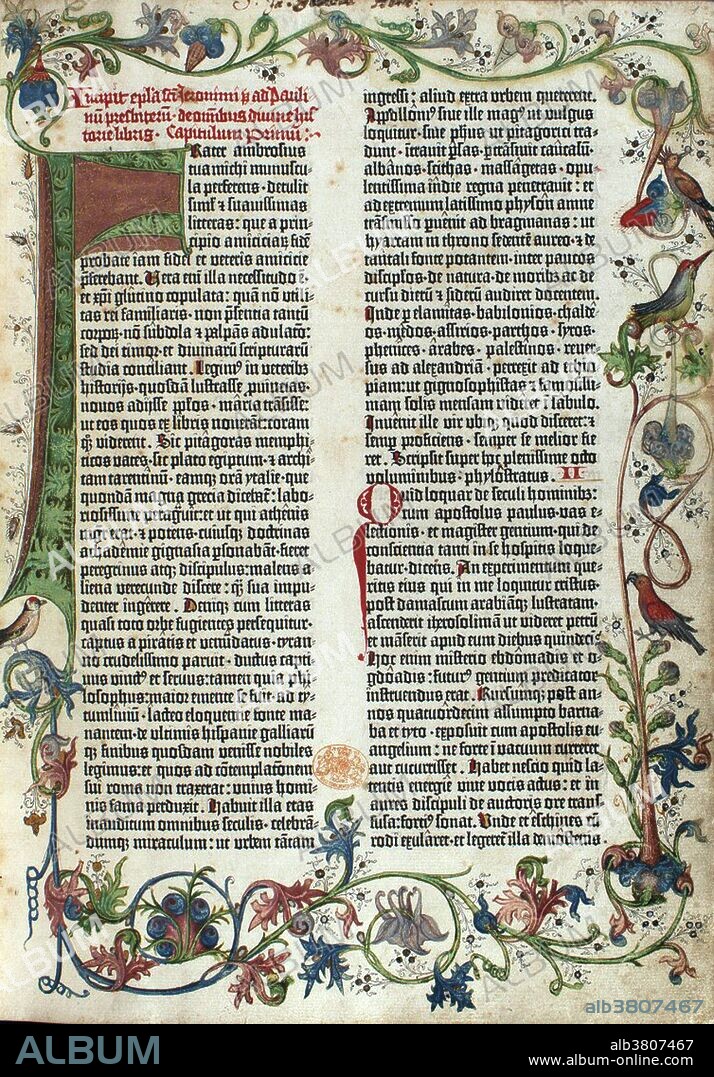 Incipit epl'a sc̄i Ieronimi p̄ ad Pauli
nū presbiterū · de om̄ibus diuine his
torie libris · Capitulum Primū :
Frater ambrosius
tua michi munuscu-
la perferens · detulit
sim̄l et suauissimas
litteras : que a prin-
cipio amiciciaꝝ fidē
probate iam fidei et veteris amicicie
p̄ferebant · Vera enī illa necessitudo ē ·
et xp̄i glutino copulata : quā nō vtili-
tas rei familiaris · non p̄sentia tantū
corpoꝝ · nō subdola et palpās adulac̄o :
sed dei timor · et diuinarū scripturarū
studia conciliant · Legim⁹ in veteribz
historijs · quosdā lustrasse puincias ·
nouos adijsse pp̄los · maria trāsisse :
ut eos quos ex libris nouerāt : coram
qz viderent · Sic pitagoras memphi-
ticos vates · sic plato egiptum · et archi-
tam tarentinū · eamqz orā ytalie · que
quondā magna grecia dicebat̄ : labo-
riosissime peragrauit : et ut qui athenis
mgr̄ erat · et potens · cuiusqz doctrinas
achademie gignasia psonabāt · fieret
peregrinus atqz discipulus : malens a-
liena verecunde discere : qz sua impu-
denter ingērere · Deniqz cum litteras
quasi toto orbe fugientes persequitur ·
captus a piratis et venūdatus · tyran-
no crudelissimo paruit · ductus captiu
uus vinct⁹ et seruus : tamen quia phi-
losophus : maior emente se fuit · ad ty-
tumliuiū · lacteo eloquentie fonte ma-
nantem · de ultimis hispanie galliarū
qz finibus quosdam venisse nobiles
legimus : et quos ad cōtemplac̄onem
sui roma non traxerat : unius homi-
nis fama perduxit · Habuit illa etas
inauditum omnibus seculis · celebrā-
dumqz miraculum : ut vrbem tātam
ingressi : aliud extra vrbem quererent ·
Appolloni⁹ siue ille mag⁹ ut vulgus
loquitur · siue ph̄us ut pitagorici tra-
dunt · ītrauit p̄sas · p̄trāsiuit caucasū ·
albānos · scithas · massāgetas · opu-
lentissima īndie regna penetrauit : et
ad extremum latissimo physon amne
trāsmisso puēnit ad bragmanas : ut
hyarcam in throno sedentē aureo · et de
tantali fonte potantem · inter paucos
discip̄los · de natura · de moribz ac de
cursu dierū et siderū audiret docentem ·
Inde p elamitas · babilonios · chalde-
os · medos · assirios · parthos · syros ·
phenices · arabes · palestinos · reuer-
sus ad alexandriā · perrexit ad ethio-
piam : ut gignosophistas et famosissi-
mam solis mensam videret ī sabulo ·
Inuēnit ille vir vbiqz quod disceret : et
semp proficiens · semper se melior fie-
ret · Scripsit super hoc plenissime octo
voluminibus · phylostratus · II
Quid loquar de seculi hominibz :
cum apostolus paulus · vas e-
lectionis · et magister gentium · qui de
conscientia tanti in se hospitis loque-
batur · dicens · An experimentum que-
ritis eius qui in me loquitur cristus ·
post damascum arabiāqz lustratam ·
ascenderit iherosolimā ut videret petrū
et māserit apud eum diebus quindecī ·
Hoc enim misterio ebdōmadis et o-
gdōadis : futur⁹ gentium predicator
instruendus erat · Rursumqz post an-
nos quatuordecim assumpto barna-
ba et tyto · exposuit cum apostolis eu-
angelium : ne forte ī vacuum curreret
aut cucurrisset · Habet nescio quid la-
tentis energie viue vocis actus : et in
aures discipuli de auctoris ore trans-
fusa : forti⁹ sonat · Vnde et eschines cū
rodi exularet · et legeretur illa demostenis
ALBUM
alb3807467
ALBUM
alb3807467
www.album-online.com